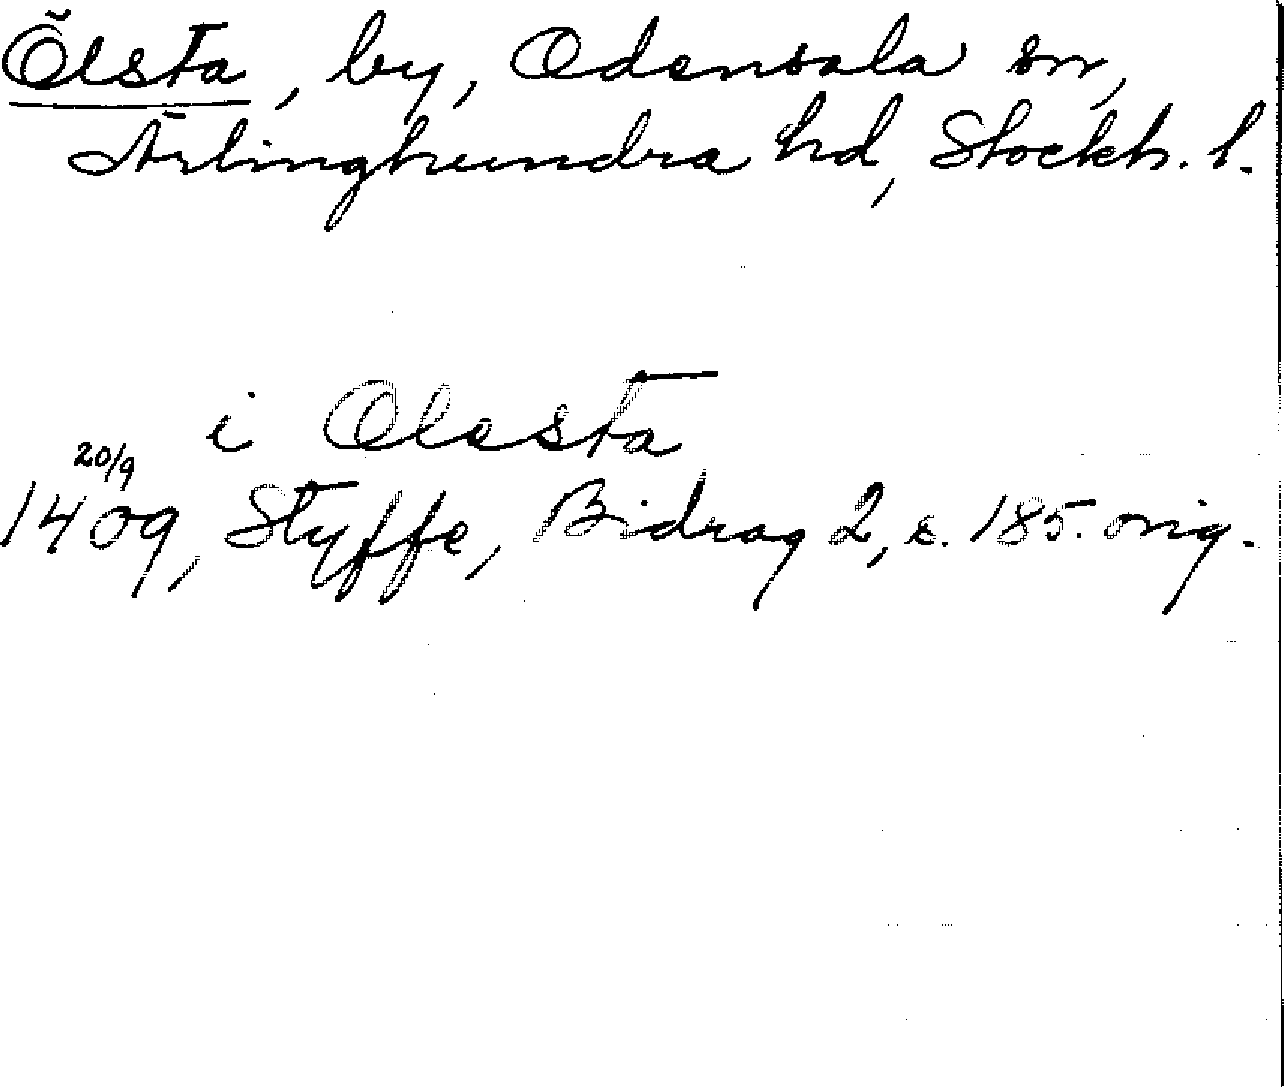 Ölsta, by, Odensala sn,
Ärlinghundra hd, Stockh. l.
i Olesta
20/9
1409, Styffe, Bidrag 2, s. 185. orig.